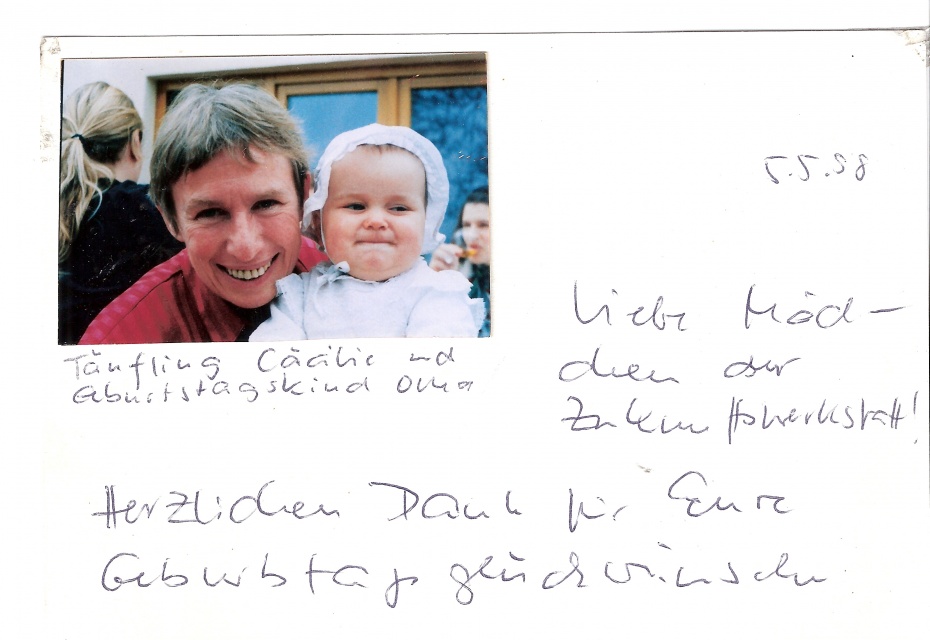 5.5.98
Liebe Mäd-
chen der
Zukunftswerkstatt!
Täufling Cäcilie und
Geburtstagskind Oma
Herzlichen Dank für Eure
Geburtstagsglückwünsche